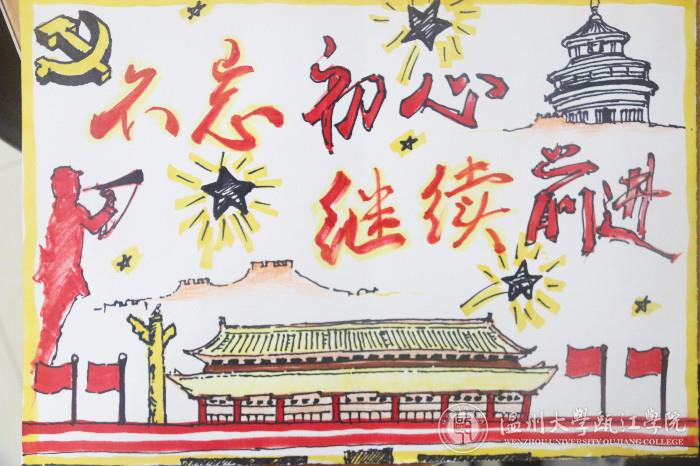 不忘初心
继续前进
温州大学瓯江学院
WENZHOU UNIVERSITY OUJIANG COLLEGE